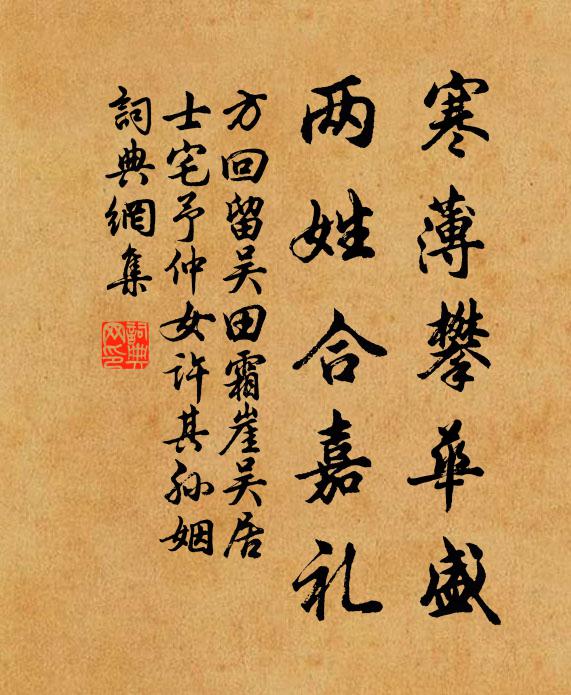 寒薄攀华盛
两姓合嘉礼
方回留吴田霜崖吴居
士宅予仲女许其孙姻
詞典網集
詞典网印